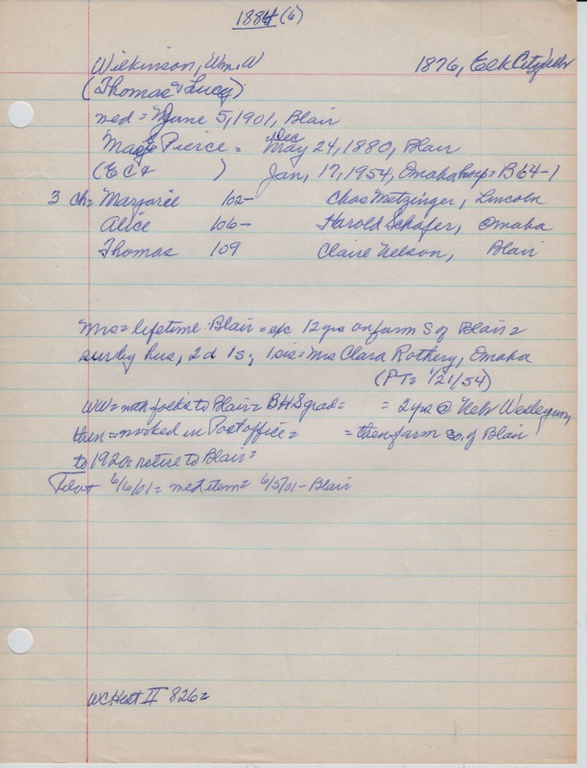 1884 (6)
Wilkinson, Wm. W 1876, Elk City, Nebr
(Thomas & Lucy)
med = June 5, 1901, Blair
Mary E Pierce = Dec 24, 1880, Blair
(E C & ) Jan, 17, 1954, Omaha hosp = B 64-1
3 ch = Marjorie 102- Chas Metzinger, Lincoln
Alice 106- Harold Schafer, Omaha
Thomas 109 Claire Nelson, Blair
Mrs = lifetime Blair = exc 12 yrs on farm S of Blair =
surv by hus, 2d 1s, 1 sis = Mrs Clara Rothery, Omaha
(PT = 1/21/54)
WW = with folks to Blair = BHS grad = = 2 yrs @ Nebr Wesleyan,
then = worked in Postoffice = = then farm so, of Blair
to 1920 = retire to Blair =
6/6/01 = med item = 6/5/01 - Blair
WCHist II 826 =